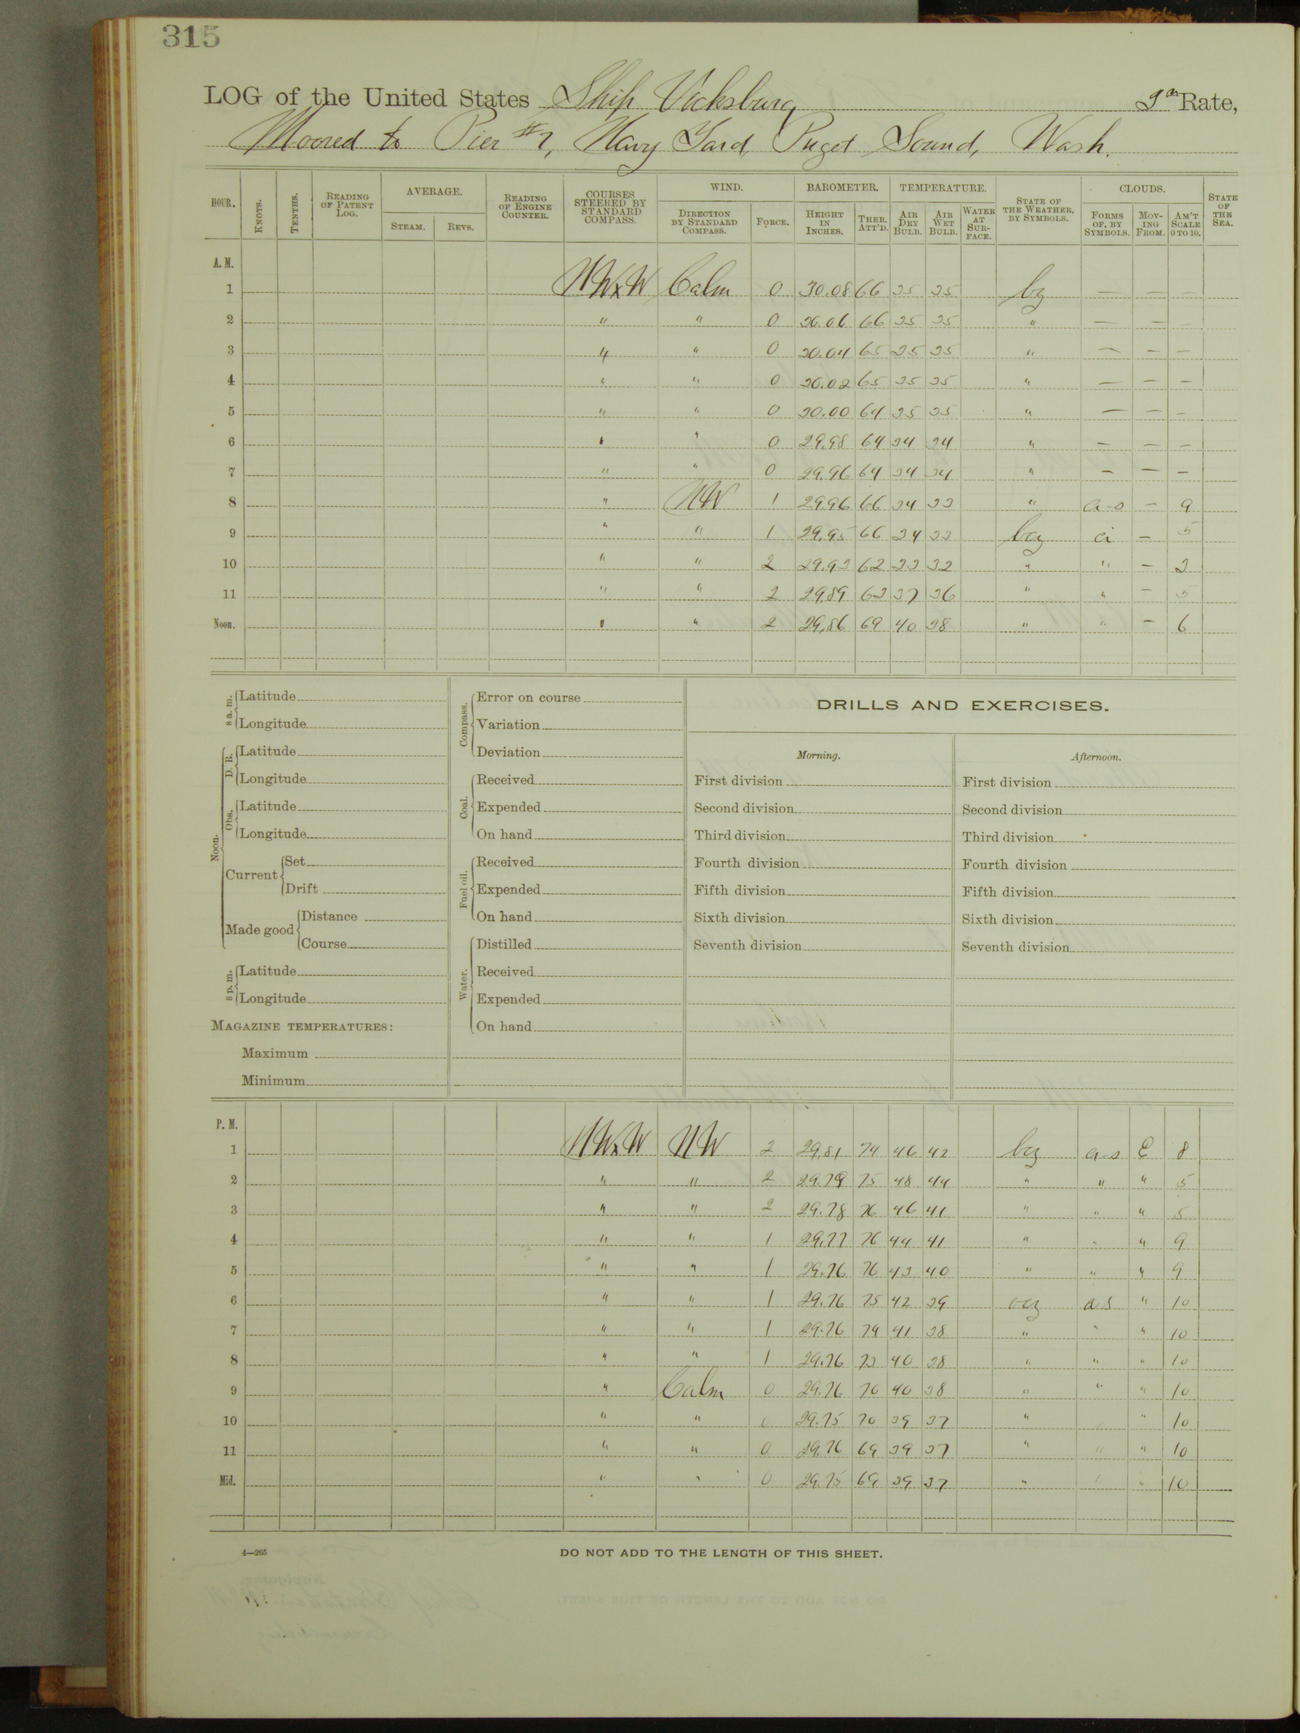 315
LOG of the United States Ship Vicksburg 3d Rate,
Moored to Pier #7, Navy Yard, Puget Sound, Wash.
HOUR. KNOTS. TENTHS. READING OF PATENT LOG. AVERAGE. STEAM. REVS. READING OF ENGINE COUNTER. COURSES STEERED BY STANDARD COMPASS. WIND. DIRECTION BY STANDARD COMPASS. FORCE. BAROMETER. HEIGHT IN INCHES. THER. ATT'D. TEMPERATURE. AIR DRY BULB. AIR WET BULB. WATER AT SURFACE. STATE OF THE WEATHER, BY SYMBOLS. CLOUDS. FORMS OF, BY SYMBOLS. MOVING FROM. AM'T SCALE 0 TO 10. STATE OF THE SEA.
A. M.
1 NWxW Calm 0 30.08 66 35 35 bz — — —
2 " " 0 30.06 66 35 35 " — — —
3 " " 0 30.04 65 35 35 " — — —
4 " " 0 30.02 65 35 35 " — — —
5 " " 0 30.00 64 35 35 " — — —
6 " " 0 29.98 64 34 34 " — — —
7 " " 0 29.96 64 34 34 " — — —
8 " NW 1 29.96 66 34 33 " a-s — 9
9 " " 1 29.95 66 34 33 bcz ci — 5
10 " " 2 29.93 62 33 32 " " — 3
11 " " 2 29.89 63 37 36 " " — 5
Noon. " " 2 29.86 69 40 38 " " — 6
8 a. m. Latitude
Longitude
Noon. D. R. Latitude
Longitude
Obs. Latitude
Longitude
Current Set
Drift
Made good Distance
Course
8 p. m. Latitude
Longitude
MAGAZINE TEMPERATURES:
Maximum
Minimum
Compass. Error on course
Variation
Deviation
Coal. Received
Expended
On hand
Fuel oil. Received
Expended
On hand
Water. Distilled
Received
Expended
On hand
DRILLS AND EXERCISES.
Morning.
First division
Second division
Third division
Fourth division
Fifth division
Sixth division
Seventh division
Afternoon.
First division
Second division
Third division
Fourth division
Fifth division
Sixth division
Seventh division
P. M.
1 NWxW NW 2 29.81 74 46 42 bcz a-s E 8
2 " " 2 29.79 75 48 44 " " " 5
3 " " 2 29.78 76 46 41 " " " 5
4 " " 1 29.77 76 44 41 " " " 9
5 " " 1 29.76 76 43 40 " " " 9
6 " " 1 29.76 75 42 39 ocz a s " 10
7 " " 1 29.76 74 41 38 " " " 10
8 " " 1 29.76 73 40 38 " " " 10
9 " Calm 0 29.76 70 40 38 " " " 10
10 " " 0 29.75 70 39 37 " " " 10
11 " " 0 29.76 69 39 37 " " " 10
Mid. " " 0 29.75 69 39 37 " " " 10
4—265
DO NOT ADD TO THE LENGTH OF THIS SHEET.